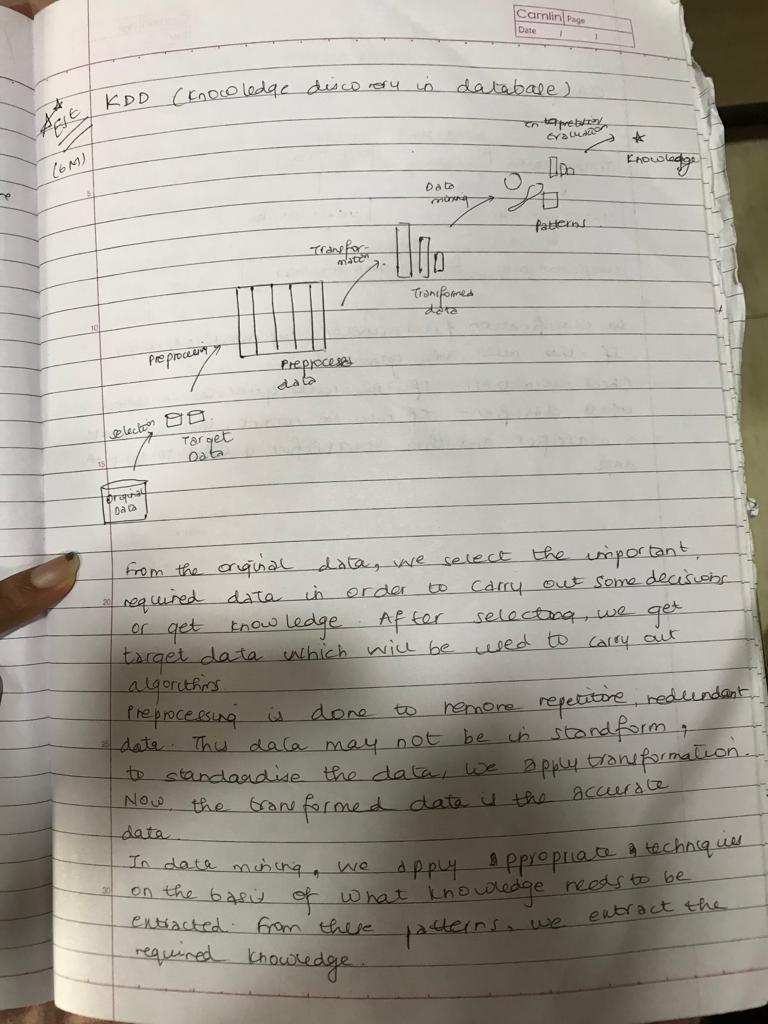 Camlin Page
Date / /
ESE
(6M)
KDD (Knowledge discovery in database)
interpretation
evaluation
Knowledge
Data
mining
Patterns
Transfor-
mation
Transformed
data
Preprocessing
Preprocessed
data
selection
Target
Data
Original
Data
5
10
15
20
25
30
From the original data, we select the important,
required data in order to carry out some decisions
or get knowledge. After selecting, we get
target data which will be used to carry out
algorithms
Preprocessing is done to remove repetitive, redundant
data. This data may not be in standform,
to standardise the data, we apply transformation.
Now, the transformed data is the accurate
data.
In data mining, we apply appropriate techniques
on the basis of what knowledge needs to be
extracted. From these patterns, we extract the
required knowledge.